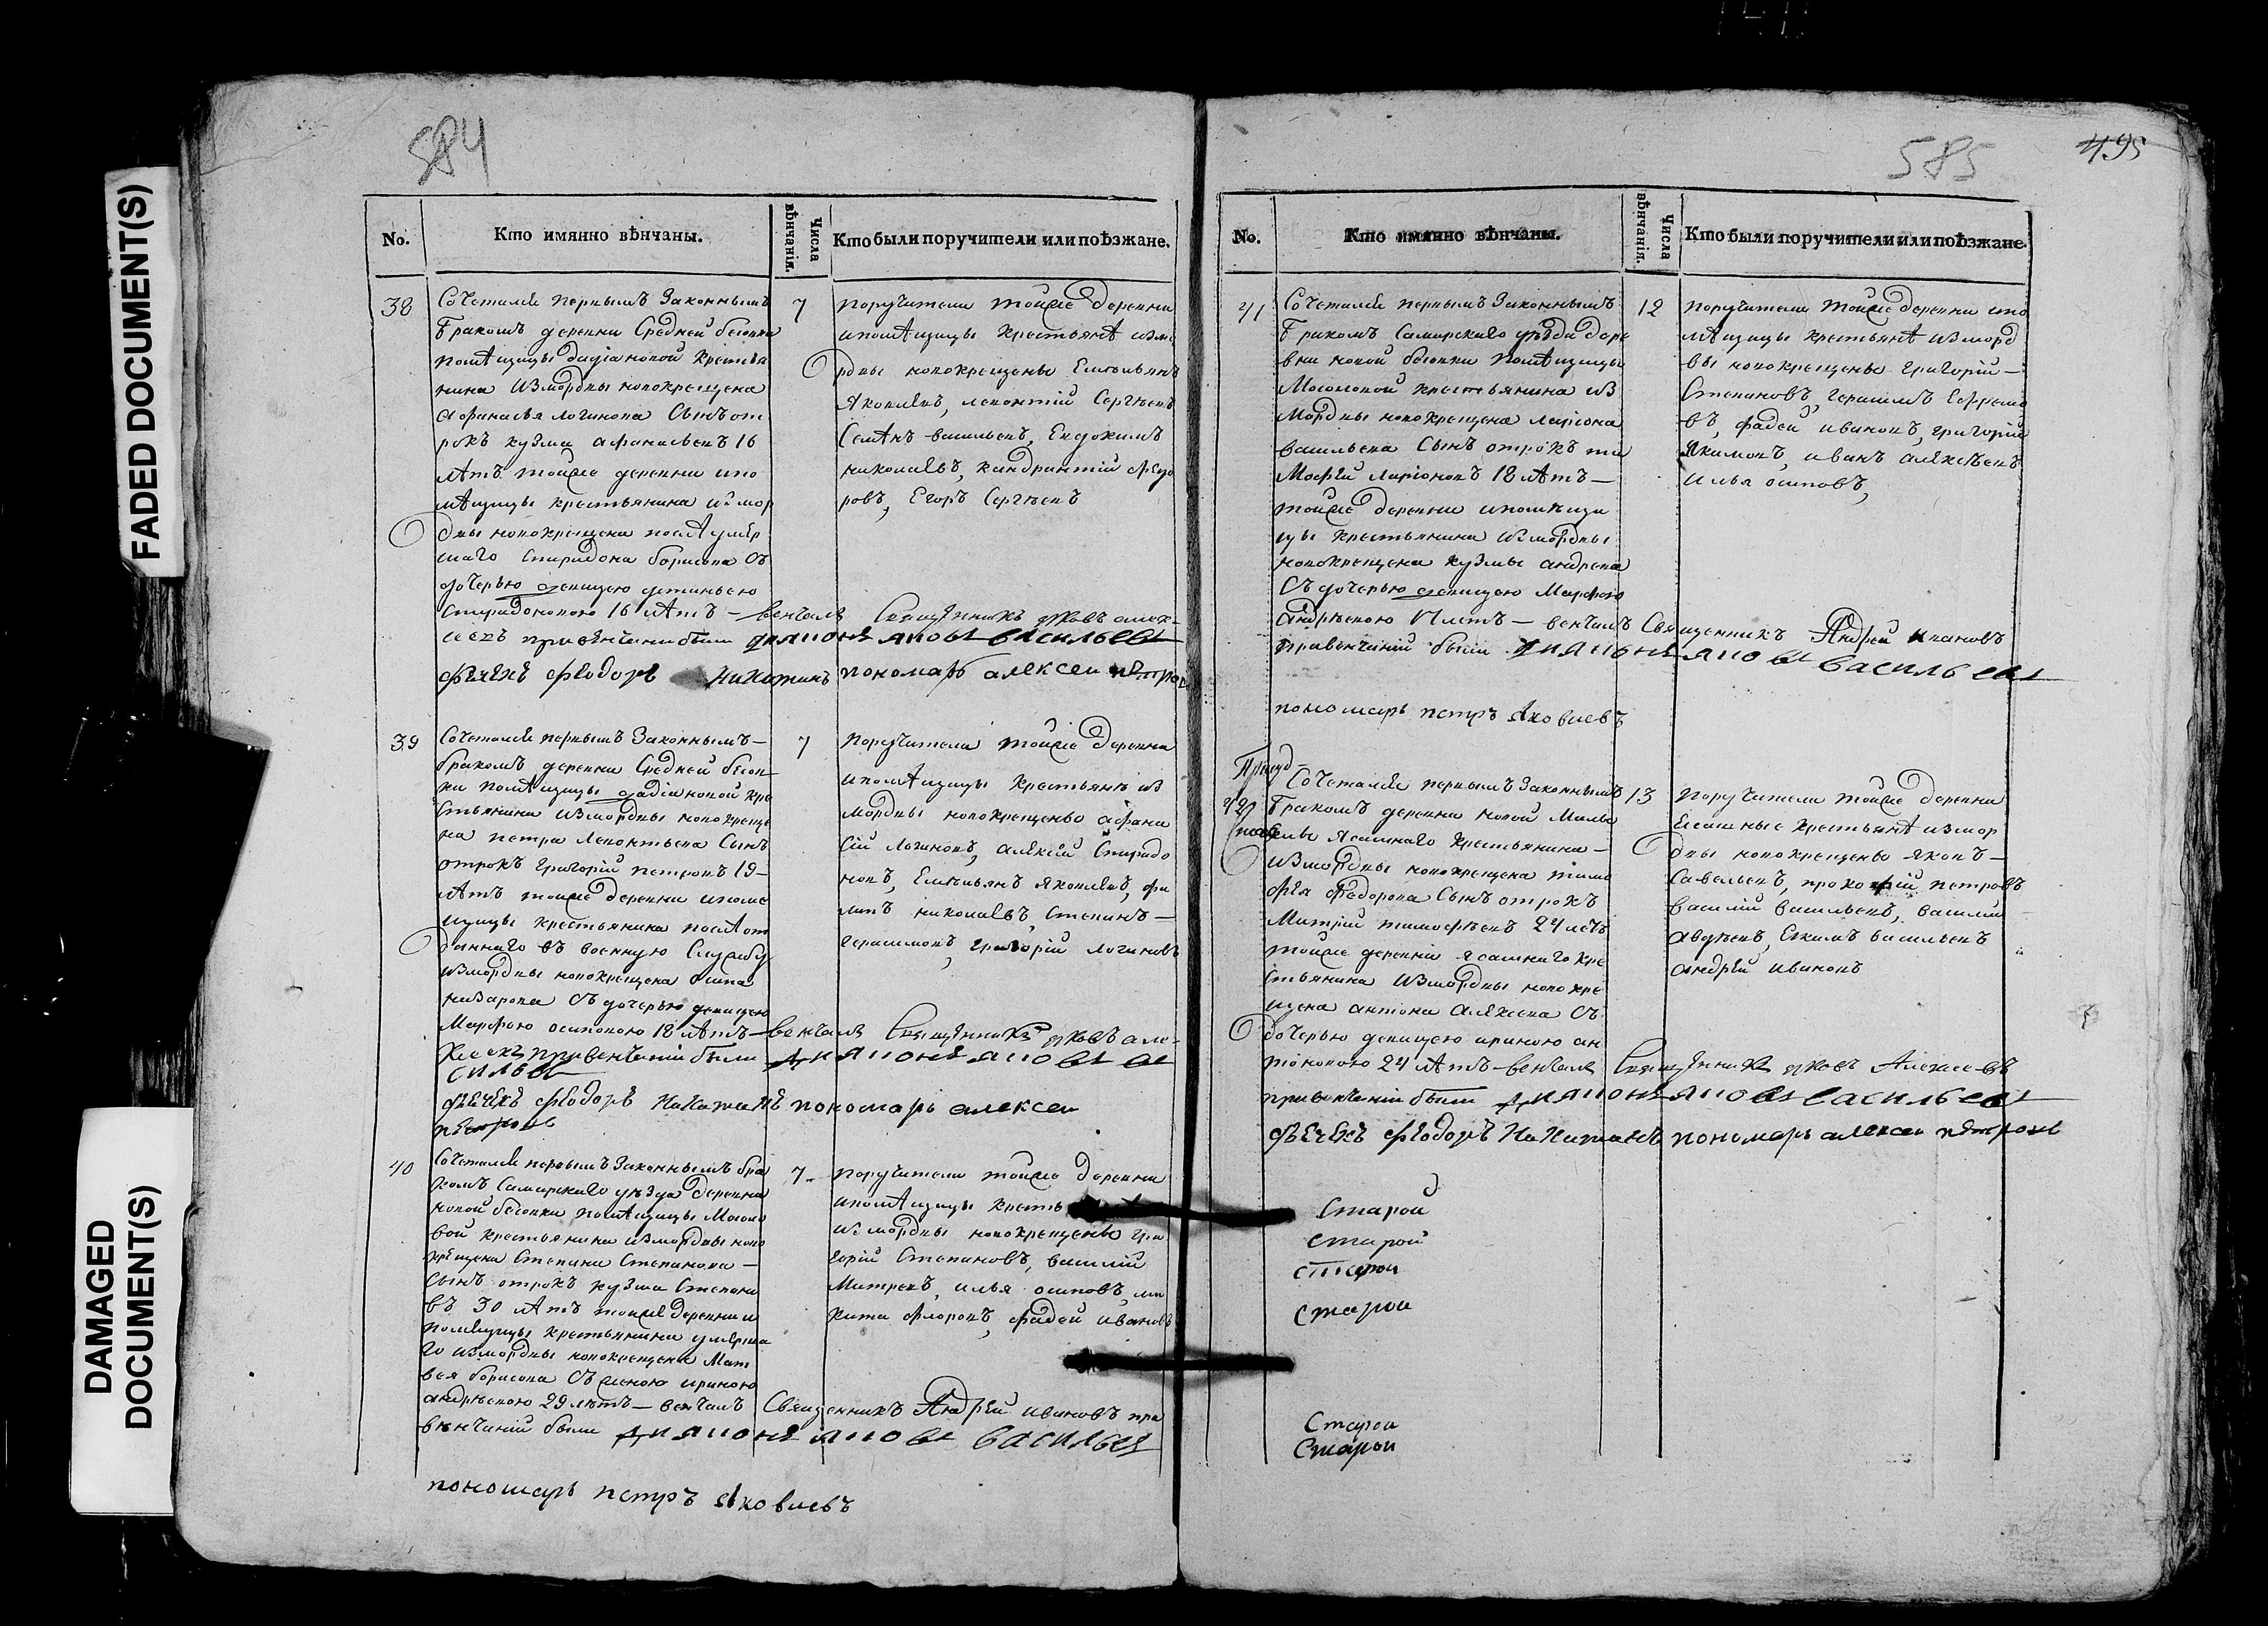 FADED DOCUMENT(S)
DAMAGED
DOCUMENT(S)
584
No.
Кто имянно вѣнчаны.
Числа
вѣнчанія.
Кто были поручители или поѣзжане.
38
Сочетался первымъ Законнымъ
бракомъ деревни Средней
помѣщицы крестья
нина измордвы новокрещена
Афанасья логинова Сынъ от
рокъ кузма афанасьевъ 16
лѣтъ тойже деревни ипо
мѣщицы крестьянина измор
двы новокрещена послѣ умер
шаго Спиридона борисова Съ
дочерью девицею
Спиридоновою 16 лѣтъ — венчалъ Священникъ яковъ алек
сеевъ привѣнчани были дияконъ яковъ васильевъ
дьячекъ феодоръ никитинъ пономарь алексеи петровъ
7
поручители тойже деревни
ипомѣщицы крестьянѣ измо
рдвы новокрещены Емельянъ
Яковлевъ, леонтій Сергѣевъ
Семѣнъ васильевъ, Евдокимъ
николаевъ, федо
ровъ, Егоръ Сергѣевъ
39
Сочетался первымъ Законнымъ —
бракомъ деревни Средней
ки помѣщицы кре
стьянина измордвы новокреще
на петра леонтьева Сынъ
отрокъ григорій петровъ 19 —
лѣтъ тойже деревни ипоме
щицы крестьянина послѣ от
даннаго въ военную Службу
измордвы новокрещена
назарова Съ дочерью девицею
Марфою осиповою 18 лѣтъ — венчалъ Священникъ яковъ але
ксеевъ привенчаніи были дияконъ яковъ ва
сильевъ
дьячекъ феодоръ никитинъ пономарь алексеи
петровъ
7
поручители тойже деревни
ипомѣщицы крестьянѣ из
мордвы новокрещены афана
сій логиновъ, алѣксій Спиридо
новъ, Емельянъ яковлевъ, фи
липъ николаевъ, Степанъ —
герасимовъ, григорій логиновъ
40
Сочетался первымъ Законнымъ бра
комъ Самарскаго уѣзда деревни
новой помѣщицы
крестьянина измордвы ново
крещена Степана Степанова —
Сынъ отрокъ кузма Степано
въ 30 лѣтъ тойже деревни и
помещицы крестьянина умерша
го измордвы новокрещена Мат
вея борисова Съ женою ириною
андрѣевою 29 лѣтъ — венчалъ Священникъ Андрей ивановъ при
вѣнчаніи были дияконъ яковъ васильевъ
пономарь петръ яковлевъ
7
поручители тойже деревни
ипомѣщицы кресть
измордвы новокрещены гри
горій Степановъ, василій
Митревъ, илья осиповъ, ми
кита флоровъ, фадей ивановъ
585
495
No.
Кто имянно вѣнчаны.
Числа
вѣнчанія.
Кто были поручители или поѣзжане.
41
Сочетался первымъ Законнымъ
бракомъ Самарскаго уѣзда дере
вни новой помѣщицы
крестьянина из
мордвы новокрещена лариона
васильева Сынъ отрокъ ти
мофѣй ларіоновъ 18 лѣтъ —
тойже деревни ипомѣщи
цы крестьянина измордвы
новокрещена кузмы андреева
Съ дочерью девицею Марфою
17 лѣтъ — венчалъ Священникъ Андрей ивановъ
привенчаніи были дияконъ яковъ васильевъ
пономарь петръ яковлевъ
12
поручители тойже деревни ипо
мѣщицы крестьянѣ изморд
вы новокрещены григорій —
Степановъ, герасимъ Ефремо
въ, фадей ивановъ, григорій
Якимовъ, иванъ алѣксѣевъ
илья осиповъ,
42
Сочетался первымъ Законнымъ
бракомъ деревни новой
ясашнаго крестьянина —
измордвы новокрещена тимо
фея федорова Сынъ отрокъ
Митрій тимофѣевъ 24 летъ
тойже деревни ясашнаго кре
стьянина измордвы новокре
щена антона алѣксева Съ
дочерью девицею ириною ан
тоновою 24 лѣтъ — венчалъ Священникъ яковъ Алексѣевъ
привенчаніи были дияконъ яковъ васильевъ
дьячекъ феодоръ никитинъ пономарь алексеи петровъ
13
поручители тойже деревни
ясашные крестьянѣ измор
двы новокрещены яковъ —
Савельевъ, прокофій петровъ
василій васильевъ, василій
авдѣевъ, Екимъ васильевъ
андрѣй ивановъ
Старой
Старой
Старой
Старой
Старой
Старой